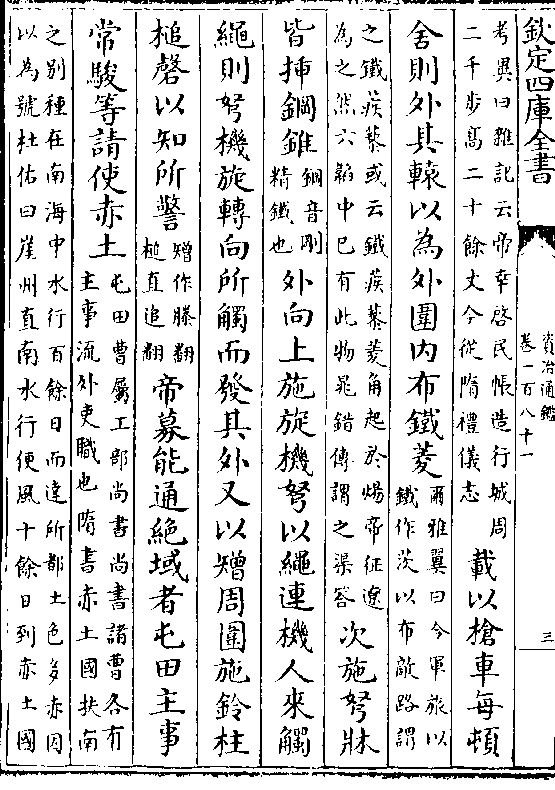 欽定四庫全書
資治通鑑
卷一百八十一
三
考異曰雜記云帝幸啓民帳造行城周
二千步髙二十餘丈今從隋禮儀志
載以槍車每頓
舍則外其轅以為外圍内布鐵菱
爾雅翼曰今軍旅以
鐵作茨以布敵路謂
之鐵蒺藜或云鐵蒺藜菱角起於煬帝征遼
為之然六韜中已有此物鼂錯傳謂之渠答
次施弩牀
皆挿鋼錐
鋼音剛
精鐵也
外向上施旋機弩以繩連機人來觸
繩則弩機旋轉向所觸而發其外又以矰周圍施鈴柱
槌磬以知所警
矰作滕翻
槌直追翻
帝募能通絶域者屯田主事
常駿等請使赤土
屯田曹屬工部尚書尚書諸曹各有
主事流外吏職也隋書赤土國扶南
之别種在南海中水行百餘日而達所都土色多赤因
以為號杜佑曰崖州直南水行便風十餘日到赤土國